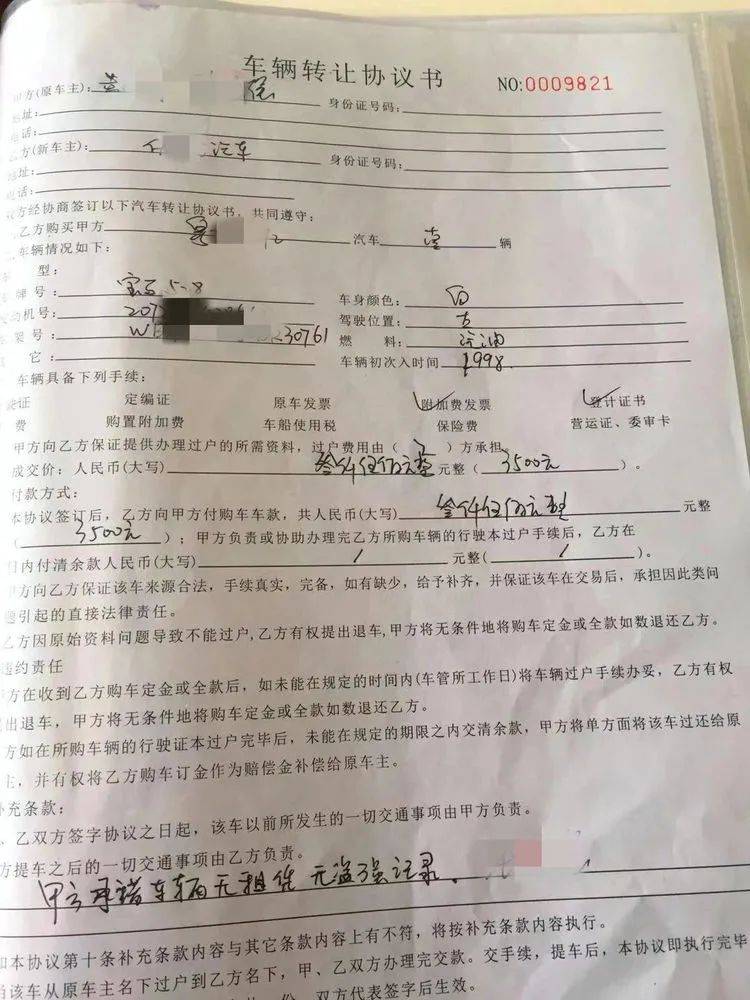 车辆转让协议书 NO:0009821
甲方(原车主): 身份证号码:
地址:
电话:
乙方(新车主): 汽车 身份证号码:
地址:
电话:
双方经协商签订以下汽车转让协议书，共同遵守:
乙方购买甲方 汽车 壹 辆
车辆情况如下:
型:
牌号: 宝马 5-8 车身颜色: 白
发动机号: 207 驾驶位置: 左
车架号: 230761 燃 料: 汽油
其 它: 车辆初次入时间 1998.
车辆具备下列手续:
驶证 定编证 原车发票 附加费发票 登计证书
费 购置附加费 车船使用税 保险费 营运证、委审卡
甲方向乙方保证提供办理过户的所需资料，过户费用由( 乙 )方承担。
成交价: 人民币(大写) 叁仟伍佰元整 元整( 3500元 )。
付款方式:
本协议签订后，乙方向甲方付购车车款，共人民币(大写) 叁仟伍佰元整 元整
( 3500元 )；甲方负责或协助办理完乙方所购车辆的行驶本过户手续后，乙方在
日内付清余款人民币(大写) / 元整( / )。
甲方向乙方保证该车来源合法，手续真实，完备，如有缺少，给予补齐，并保证该车在交易后，承担因此类问
题引起的直接法律责任。
乙方因原始资料问题导致不能过户,乙方有权提出退车,甲方将无条件地将购车定金或全款如数退还乙方。
违约责任
方在收到乙方购车定金或全款后，如未能在规定的时间内(车管所工作日)将车辆过户手续办妥，乙方有权
提出退车，甲方将无条件地将购车定金或全款如数退还乙方。
方如在所购车辆的行驶证本过户完毕后，未能在规定的期限之内交清余款，甲方将单方面将该车过还给原
主，并有权将乙方购车订金作为赔偿金补偿给原车主。
补充条款:
、乙双方签字协议之日起，该车以前所发生的一切交通事项由甲方负责。
方提车之后的一切交通事项由乙方负责。
甲方承诺车辆无租赁 无盗强记录.
如本协议第十条补充条款内容与其它条款内容上有不符，将按补充条款内容执行。
当该车从原车主名下过户到乙方名下，甲、乙双方办理完交款。交手续，提车后，本协议即执行完毕
份，双方代表签字后生效。